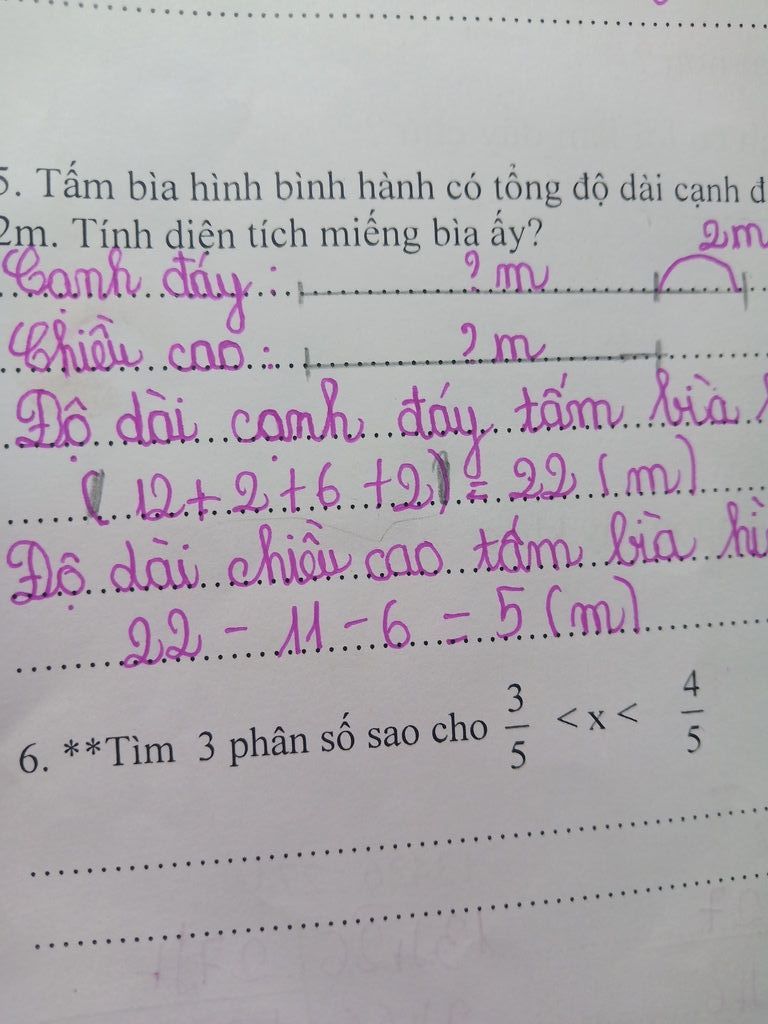 5. Tấm bìa hình bình hành có tổng độ dài cạnh
2m. Tính diện tích miếng bìa ấy?
2m
Cạnh đáy: ? m
Chiều cao: ? m
Độ dài cạnh đáy tấm bìa
( 12 + 2 + 6 + 2 ) = 22 (m)
Độ dài chiều cao tấm bìa
22 - 11 - 6 = 5 (m)
6. **Tìm 3 phân số sao cho 3/5 < x < 4/5